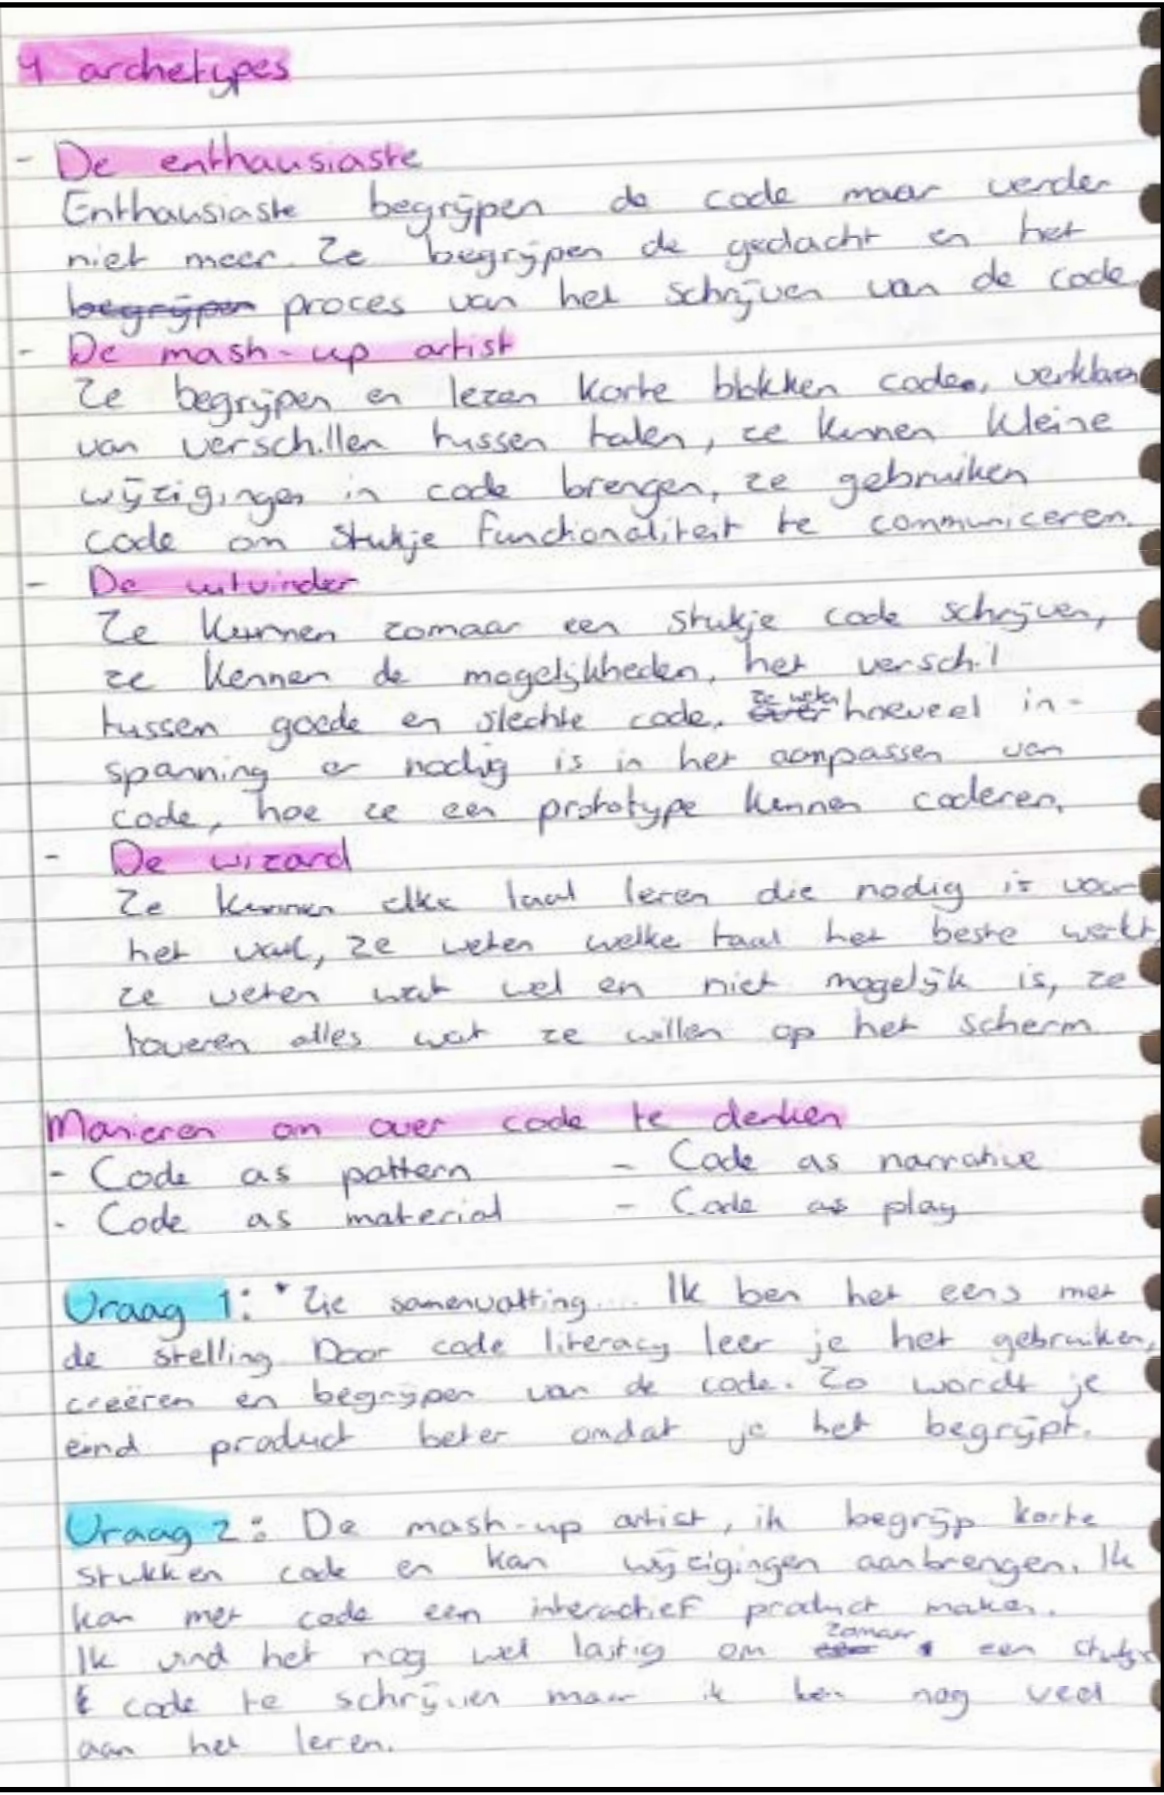 4 archetypes
- De enthausiaste
Enthausiaste begrijpen de code maar verder
niet meer. Ze begrijpen de gedacht en het
begrijpen proces van het schrijven van de code
- De mash-up artist
Ze begrijpen en lezen korte blokken code, verklaren
van verschillen tussen talen, ze kunnen kleine
wijzigingen in code brengen, ze gebruiken
code om stukje functionaliteit te communiceren.
- De uitvinder
Ze kunnen zomaar een stukje code schrijven,
ze kennen de mogelijkheden, het verschil
tussen goede en slechte code, ze weten hoeveel in-
spanning er nodig is in het aanpassen van
code, hoe ze een prototype kunnen coderen.
- De wizard
Ze kunnen elke taal leren die nodig is voor
het vak, ze weten welke taal het beste werkt,
ze weten wat wel en niet mogelijk is, ze
toveren alles wat ze willen op het scherm
Manieren om over code te denken
- Code as pattern - Code as narrative
- Code as material - Code as play
Vraag 1: * Zie samenvatting... Ik ben het eens met
de stelling. Door code literacy leer je het gebruiken,
creëren en begrijpen van de code. Zo wordt je
eind product beter omdat je het begrijpt.
Vraag 2: De mash-up artist, ik begrijp korte
stukken code en kan wijzigingen aanbrengen. Ik
kan met code een interactief product maken.
Ik vind het nog wel lastig om zomaar een stukje
code te schrijven maar ik ben nog veel
aan het leren.